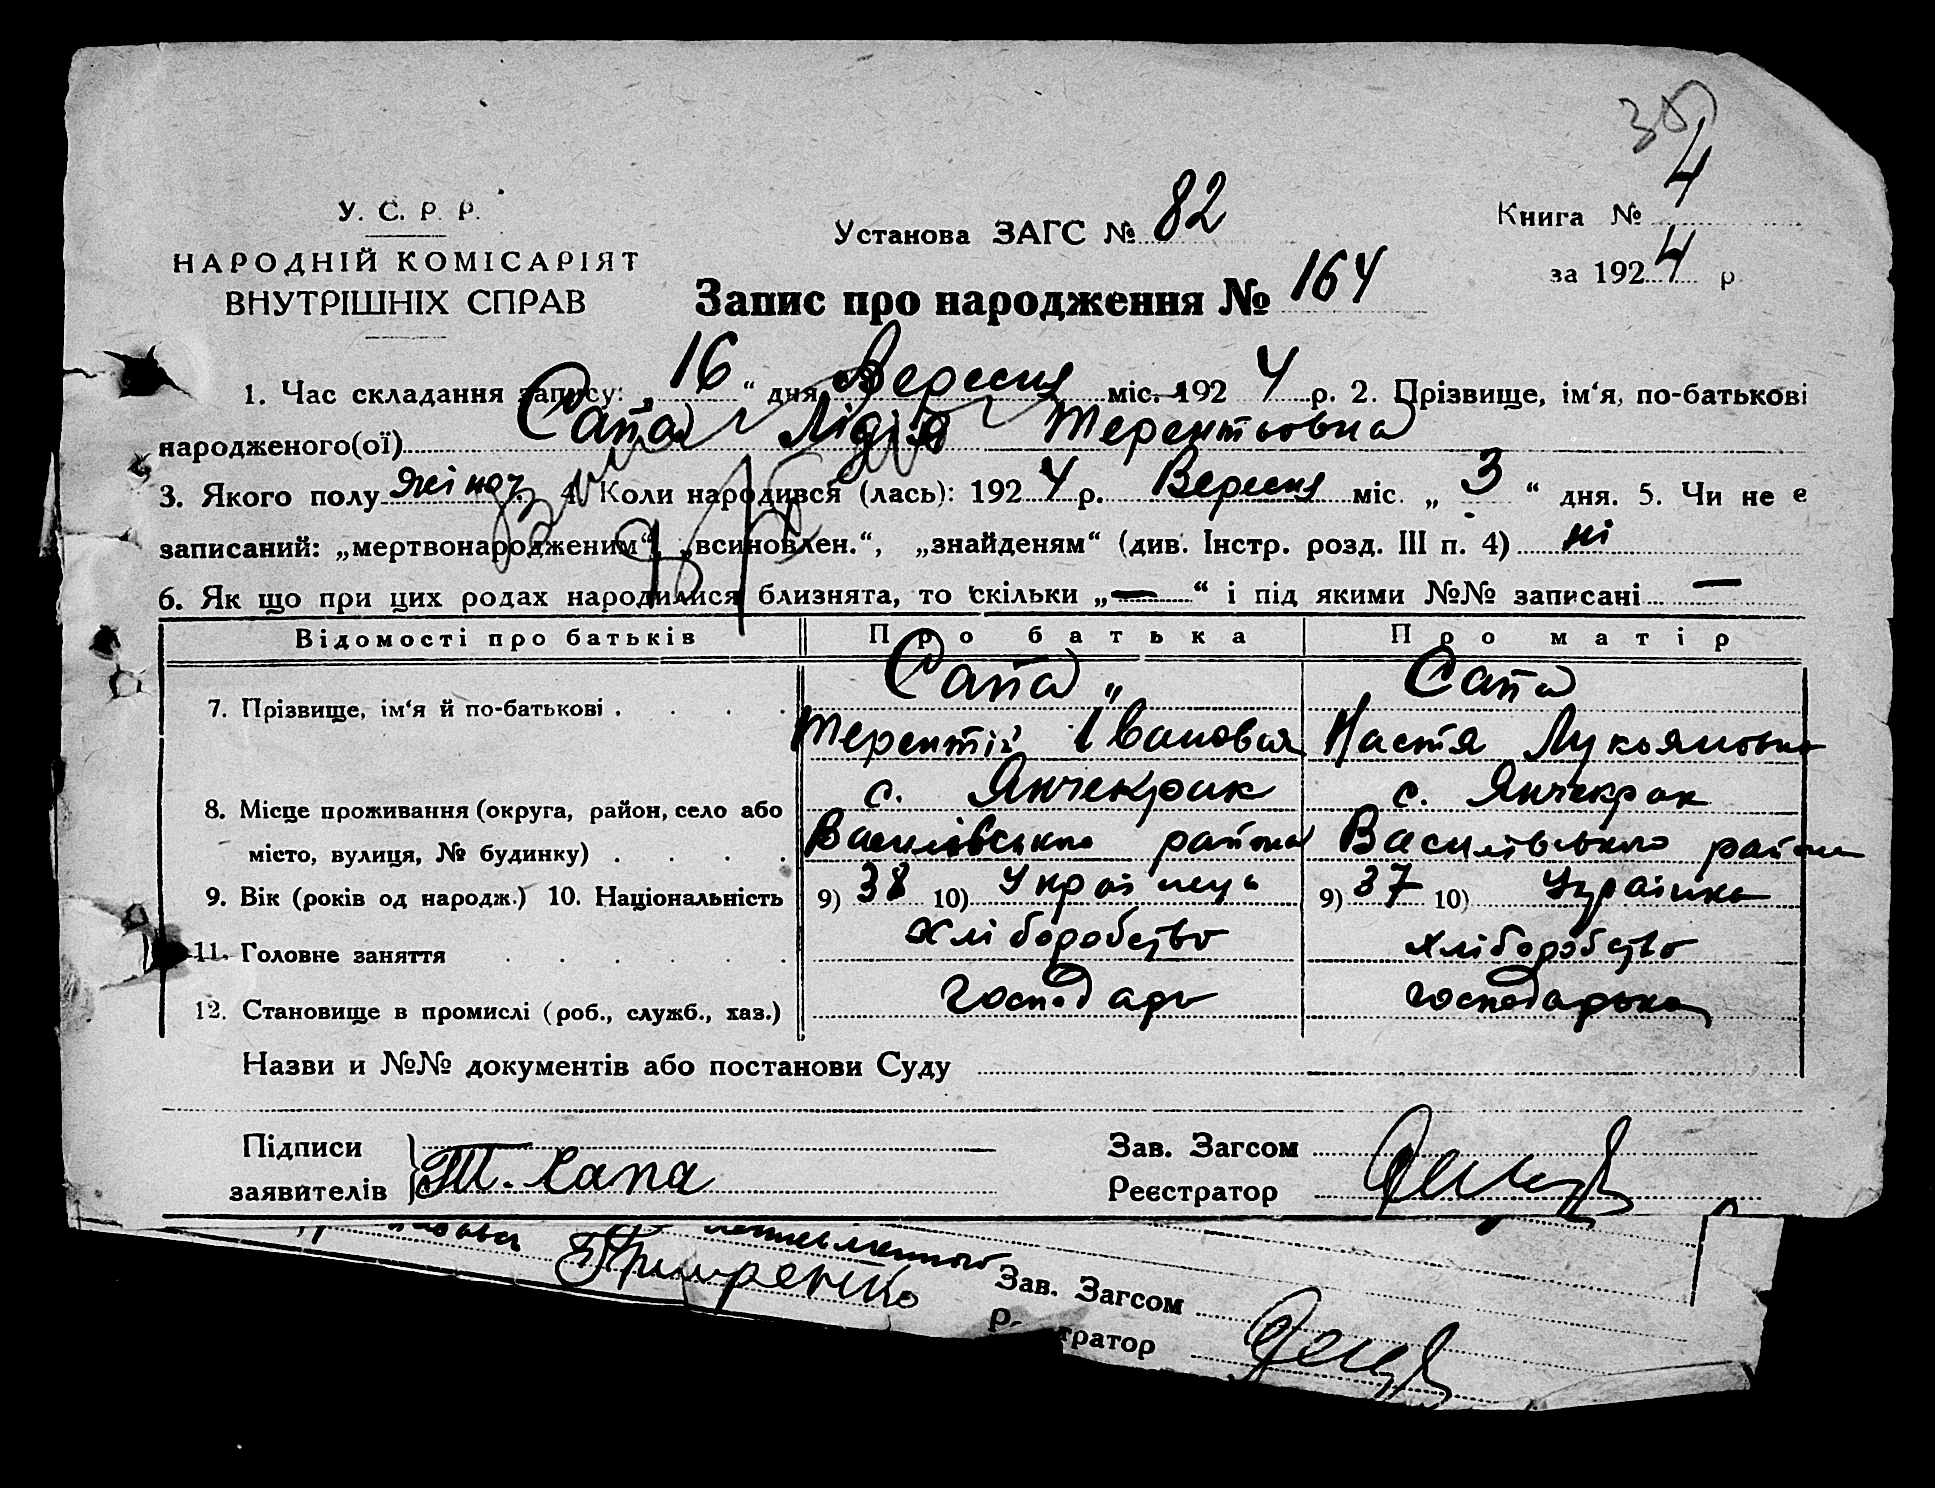 30
У. С. Р. Р.
НАРОДНІЙ КОМІСАРІЯТ
ВНУТРІШНІХ СПРАВ
Установа ЗАГС № 82
Книга № 4
за 1924 р.
Запис про народження № 164
1. Час складання запису: „16“ дня Вересня міс. 1924 р. 2. Прізвище, ім‘я, по-батькові
народженого(ої) Сапа Лідія Терентьовна
3. Якого полу жіноч. 4. Коли народився (лась): 1924 р. Вересня міс. „3“ дня. 5. Чи не є
записаний: „мертвонародженим“, „всиновлен.“, „знайденям“ (див. Інстр. розд. III п. 4) ні
6. Як що при цих родах народилися близнята, то скільки „—“ і під якими №№ записані —
Відомості про батьків Про батька Про матір
7. Прізвище, ім‘я й по-батькові . . . .
Сапа Сапа
Терентій Іванович Настя Лукьяновна
8. Місце проживання (округа, район, село або
місто, вулиця, № будинку) . . . .
с. Янчекрак с. Янчекрак
Василівського района Василівського района
9. Вік (років од народж.) 10. Національність 9) 38 10) Українець 9) 37 10) Українка
11. Головне заняття . . . . . . хліборобство хліборобство
12. Становище в промислі (роб., служб., хаз.) господарь господарька
Назви и №№ документів або постанови Суду
Підписи
заявителів Т. Сапа
Зав. Загсом
Реєстратор
Зав. Загсом